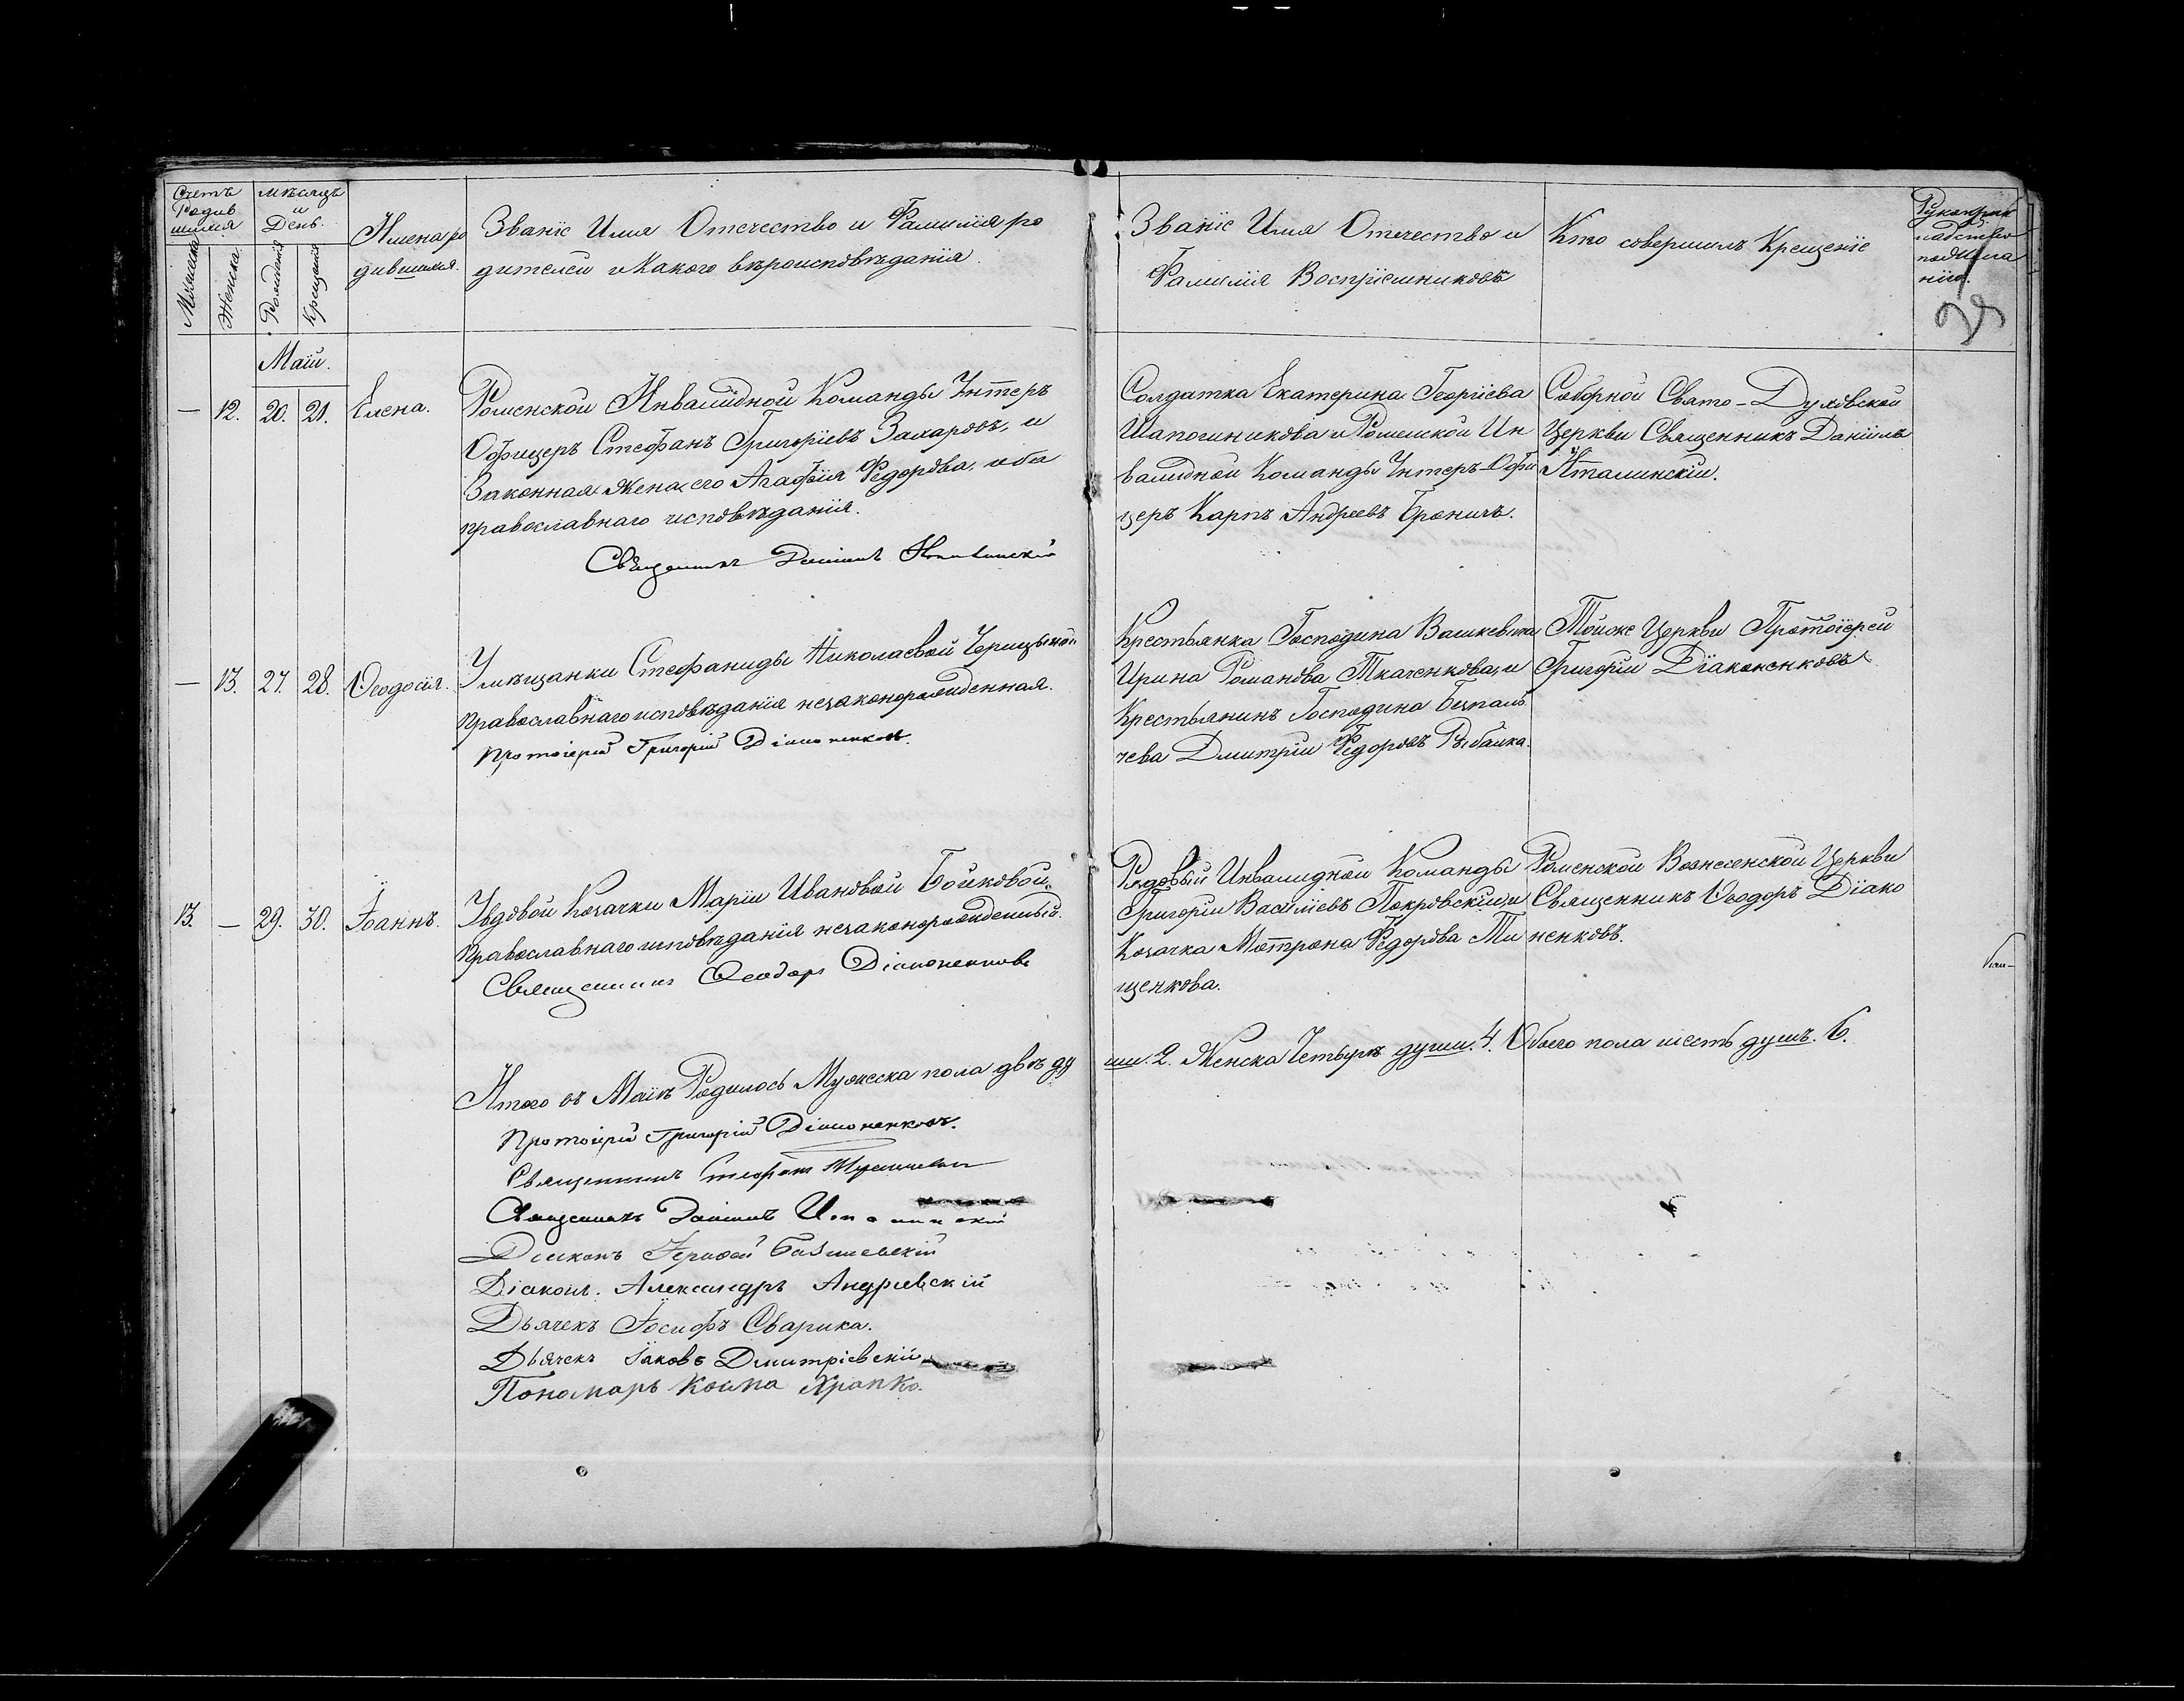 Счетъ Родив шихся
Мужеска
Женска
мѣсяцъ и День.
Рожденія
Крещенія
Имена ро
дившихся.
Званіе Имя Отечество и Фамилія ро
дителей и Какого вѣроисповѣданія.
Званіе Имя Отечество и
Фамилія Воспріемниковъ
Кто совершилъ Крещеніе
Маій.
— 12. 20. 21. Елена.
Роменской Инвалидной Команды Унтеръ
Офицеръ Стефанъ Григоріевъ Захаровъ, и
Законная Жена его Агафія Федорова, оба
православнаго исповѣданія.
Священникъ Даніилъ
Солдатка Екатерина Георгіева
Шапошникова и Роменской Ин
валидной Команды Унтеръ Офи
церъ Карпъ Андреевъ
Соборной Свято-Духовской
Церкви Священникъ Даніилъ
— 13. 27. 28. Ѳеодосія.
У мѣщанки Стефаниды Николаевой
православнаго исповѣданія незаконорожденная.
Протоіерей Григорій Діаконенковъ.
Крестьянка Господина Вашкевича
Ирина Романова Ткаченкова, и
Крестьянинъ Господина Безпаль
чева Дмитрій Федоровъ Рыбалка.
Тойже Церкви Протоіерей
Григорій Діаконенковъ
13. — 29. 30. Іоаннъ.
У вдовой Козачки Маріи Ивановой Бойковой.
Православнаго исповѣданія незаконорожденный.
Священникъ Ѳеодоръ Діаконенковъ
Рядовый Инвалидной Команды
Григорій Василіевъ Покровскій, и
Козачка Мотрона Федорова Ти
щенкова.
Роменской Вознесенской Церкви
Священникъ Ѳеодоръ Діако
ненковъ.
Итого въ Маіѣ Родилось Мужеска пола двѣ ду
ши. 2. Женска Четырѣ души. 4. Обоего пола шесть душъ. 6.
Протоіерей Григорій Діаконенковъ.
Священникъ Стефанъ
Священникъ Даніилъ
Діаконъ
Діаконъ. Александръ Андріевскій
Дьячекъ Іосифъ Сварика.
Дьячекъ Іаковъ Дмитріевскій
Пономарь Косма Храпко.